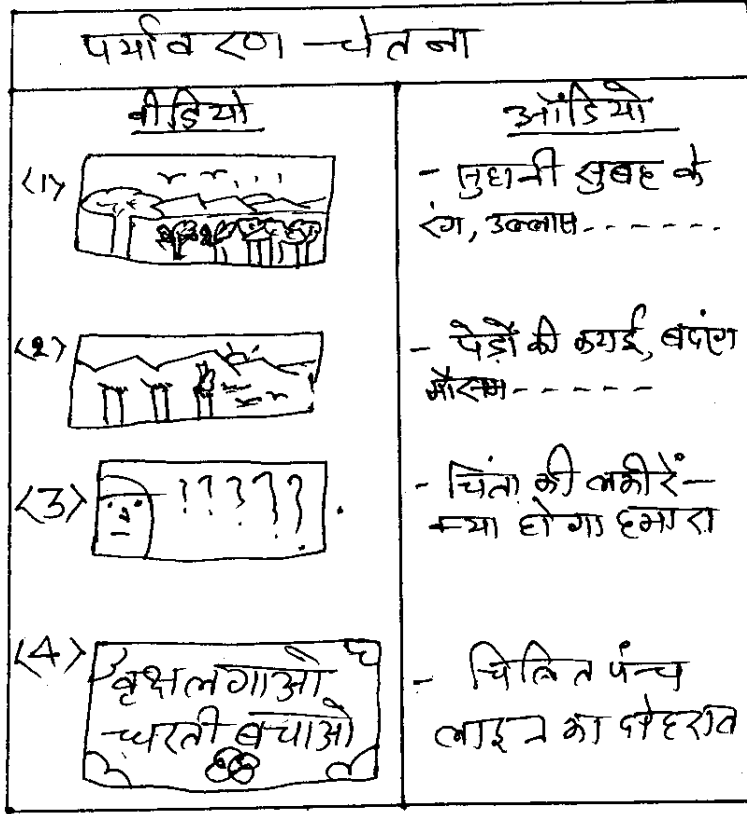 पर्यावरण-चेतना
वीडियो
ऑडियो
<1>
- सुहानी सुबह के
रंग, उल्लास-------
<2>
- पेड़ों की कटाई, बदरंग
मौसम-----
<3>
?????
- चिंता की लकीरें-
क्या होगा हमारा
<4>
वृक्ष लगाओ
धरती बचाओ
- चित्रित पंच
लाइन का दोहराव